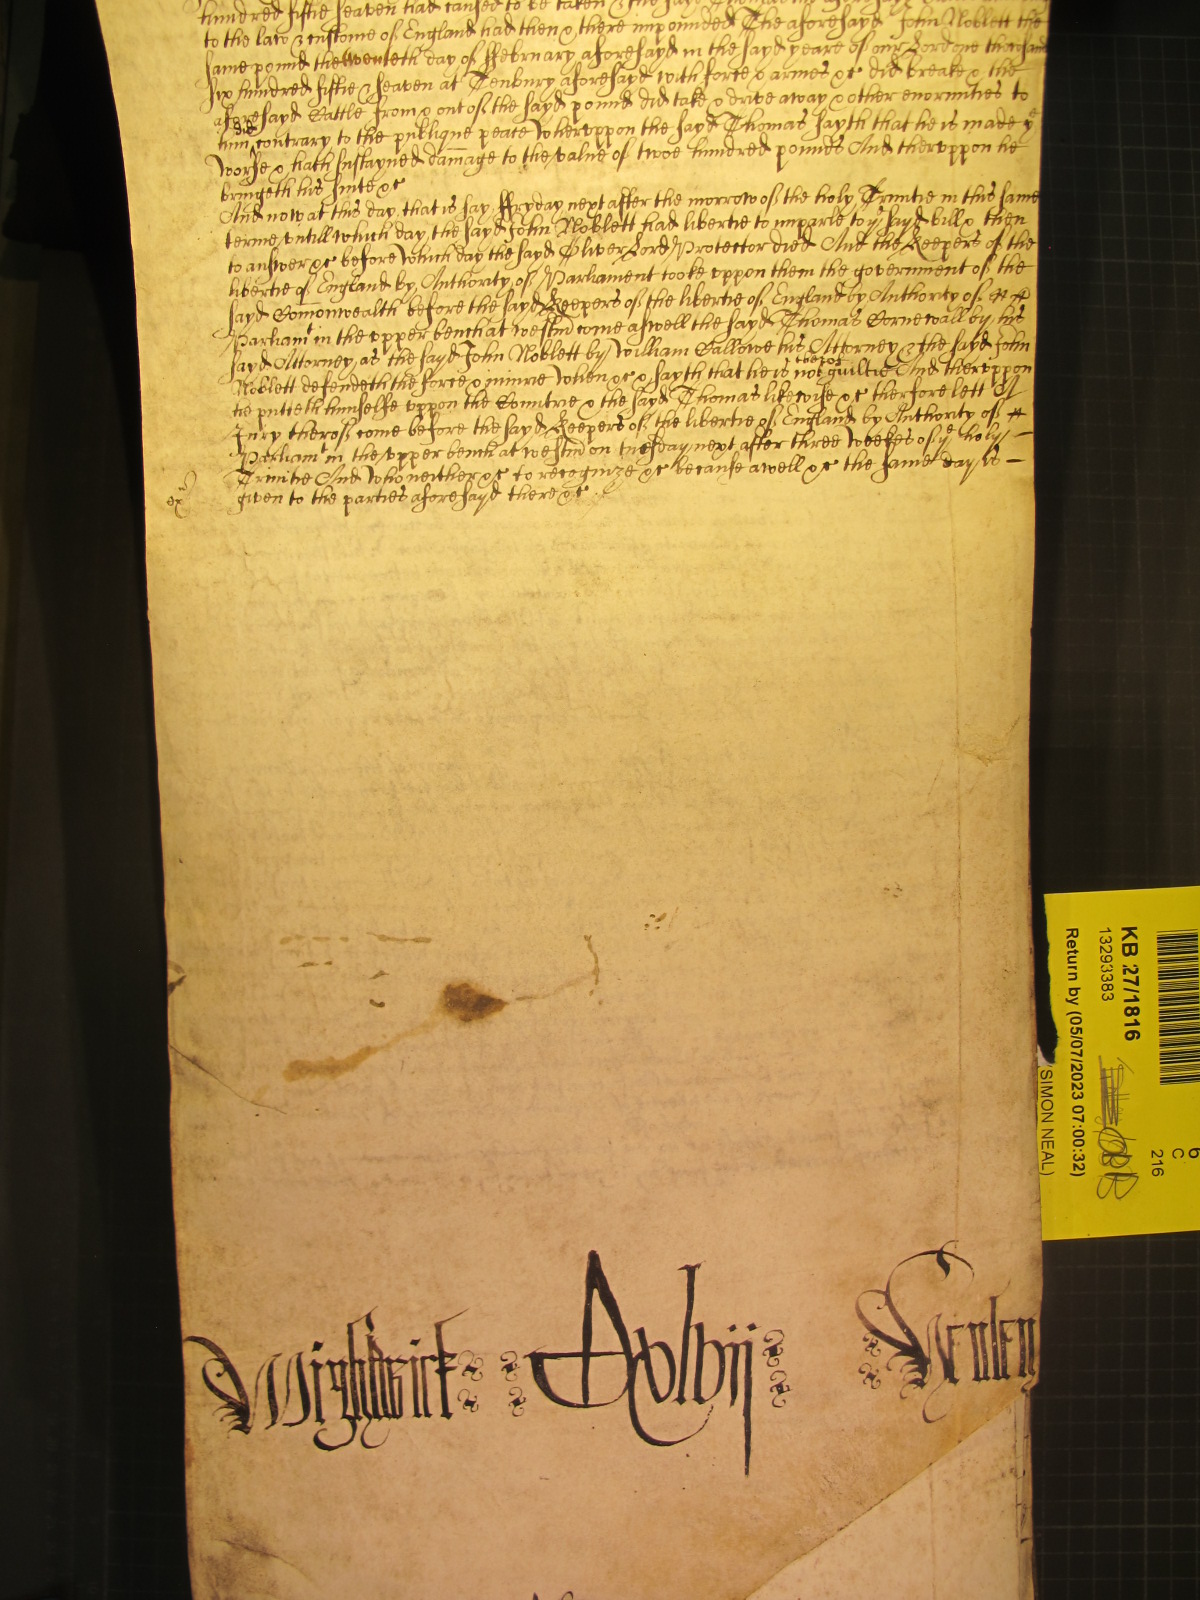 hundred fiftie seaven had caused to be taken & the same
to the law & custome of England had then & there impounded The aforesayd John Noblett the
same pound the twentieth day of ffebruary aforesayd in the sayd yeare of our Lord one thousand
six hundred fiftie & seaven at Tenbury aforesayd with force & armes &c did breake & the
aforesayd Cattle from & out of the sayd pound did take & drive away & other enormities to
him did contrary to the publique peace wheruppon the sayd Thomas sayth that he is made ye
worse & hath sustayned damage to the value of twoe hundred pounds And theruppon he
bringeth his suite &c
And now at this day, that is say, ffryday next after the morrow of the holy Trinitie in this same
terme, untill which day, the sayd John Noblett had libertie to imparle to ye sayd bill & then
to answer &c before which day the sayd Oliver Lord Protector died And the Keepers of the
libertie of England by Authority of Parliament tooke uppon them the government of the
sayd Comonwealth before the sayd Keepers of the libertie of England by Authority of
Parliamt in the upper bench at Westm come aswell the sayd Thomas Cornewall by his
sayd Attorney, as the sayd John Noblett by William Gallowe his Attorney & the sayd John
Noblett defendeth the force & iniurie when &c & sayth that he is not therof guiltie And theruppon
he putteth himselfe uppon the Countrie & the sayd Thomas likewise &c therfore lett a
Jury therof come before the sayd Keepers of the libertie of England by Authority of
Parliamt in the upper bench at westm on tuesday next after three weekes of ye holy
Trinitie And who neither &c to recognize &c because aswell &c the same day is
given to the parties aforesayd there &c
ex
Wightwick Rolvij
KB 27/1816
13293383
Return by (05/07/2023 07:00:32)
(SIMON NEAL)
6
C
216